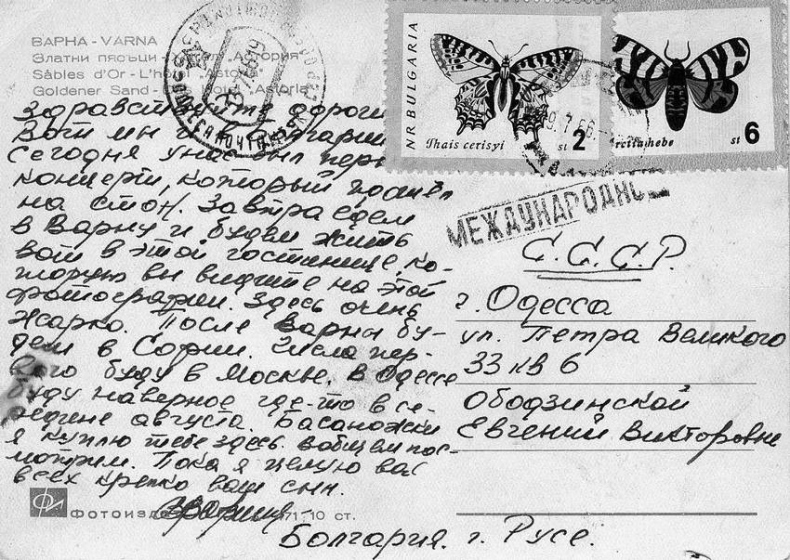 ВАРНА - VARNA
Златни пясъци - "Астория"
Sâbles d'Or - L'hôtel "Astoria"
Goldener Sand - Hotel "Astoria"
Здравствуйте дороги
Вот мы и в Болгарии
Сегодня у нас был перв
концерт, который прошёл
на стон. Завтра едем
в Варну и будем жить
вот в этой гостинице, ко-
торую вы видите на этой
фотографии. Здесь очень
жарко. После Варны бу-
дем в Софии. Числа пер-
вого буду в Москве. В Одессе
буду наверное где-то в се-
редине августа. Басаножки
я куплю тебе здесь. вобщем пос-
мотрим. Пока я целую вас
всех крепко ваш сын.
ФОТОИЗД 71, 10 ст.
NR BULGARIA
Thais cerisyi st 2
Arctia hebe st 6
9.7.66
МЕЖДУНАРОДНО
С.С.С.Р.
г. Одесса
ул. Петра Великого
33 кв 6
Ободзинской
Евгений Викторовне
Болгария. г. Русе.